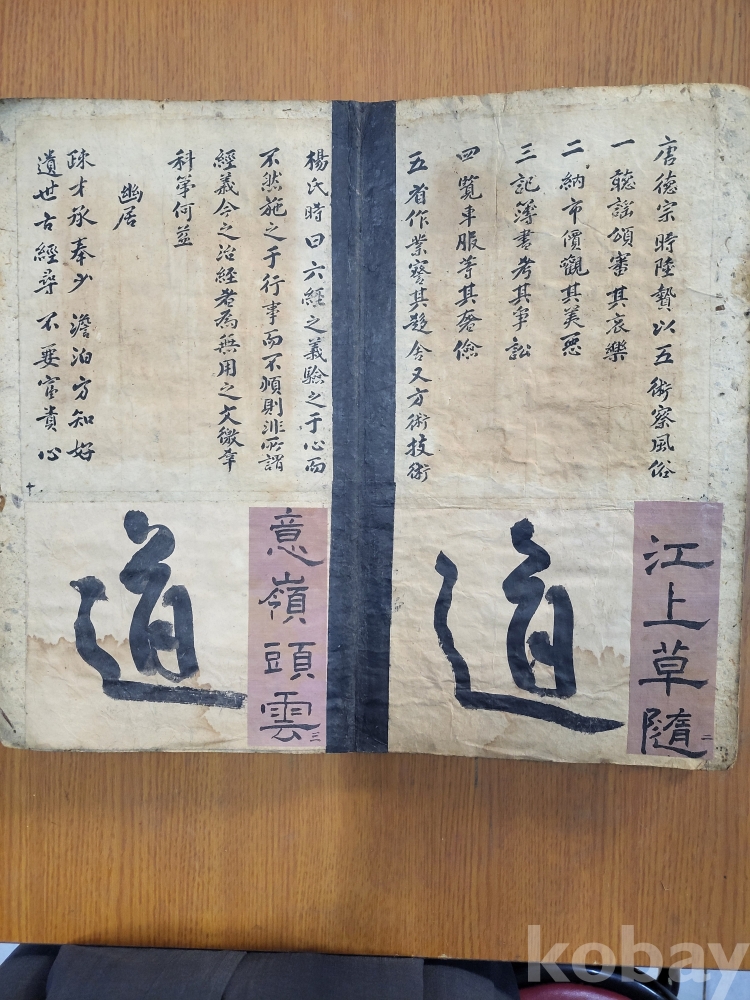 唐德宗時陸贄以五術察風俗
一聽謠頌審其哀樂
二納市價觀其美悪
三記簿書考其爭訟
四覧車服等其奢儉
五省作業察其趍舍又方術技術
江上草隨二
道
楊氏時曰六經之義驗之于心而
不然施之于行事而不順則非所謂
經義今之治經者為無用之文徼幸
科第何益
幽居
疎才承奉少 澹泊方知好
遺世古經尋 不要富貴心
十
意嶺頭雲三
道
kobay